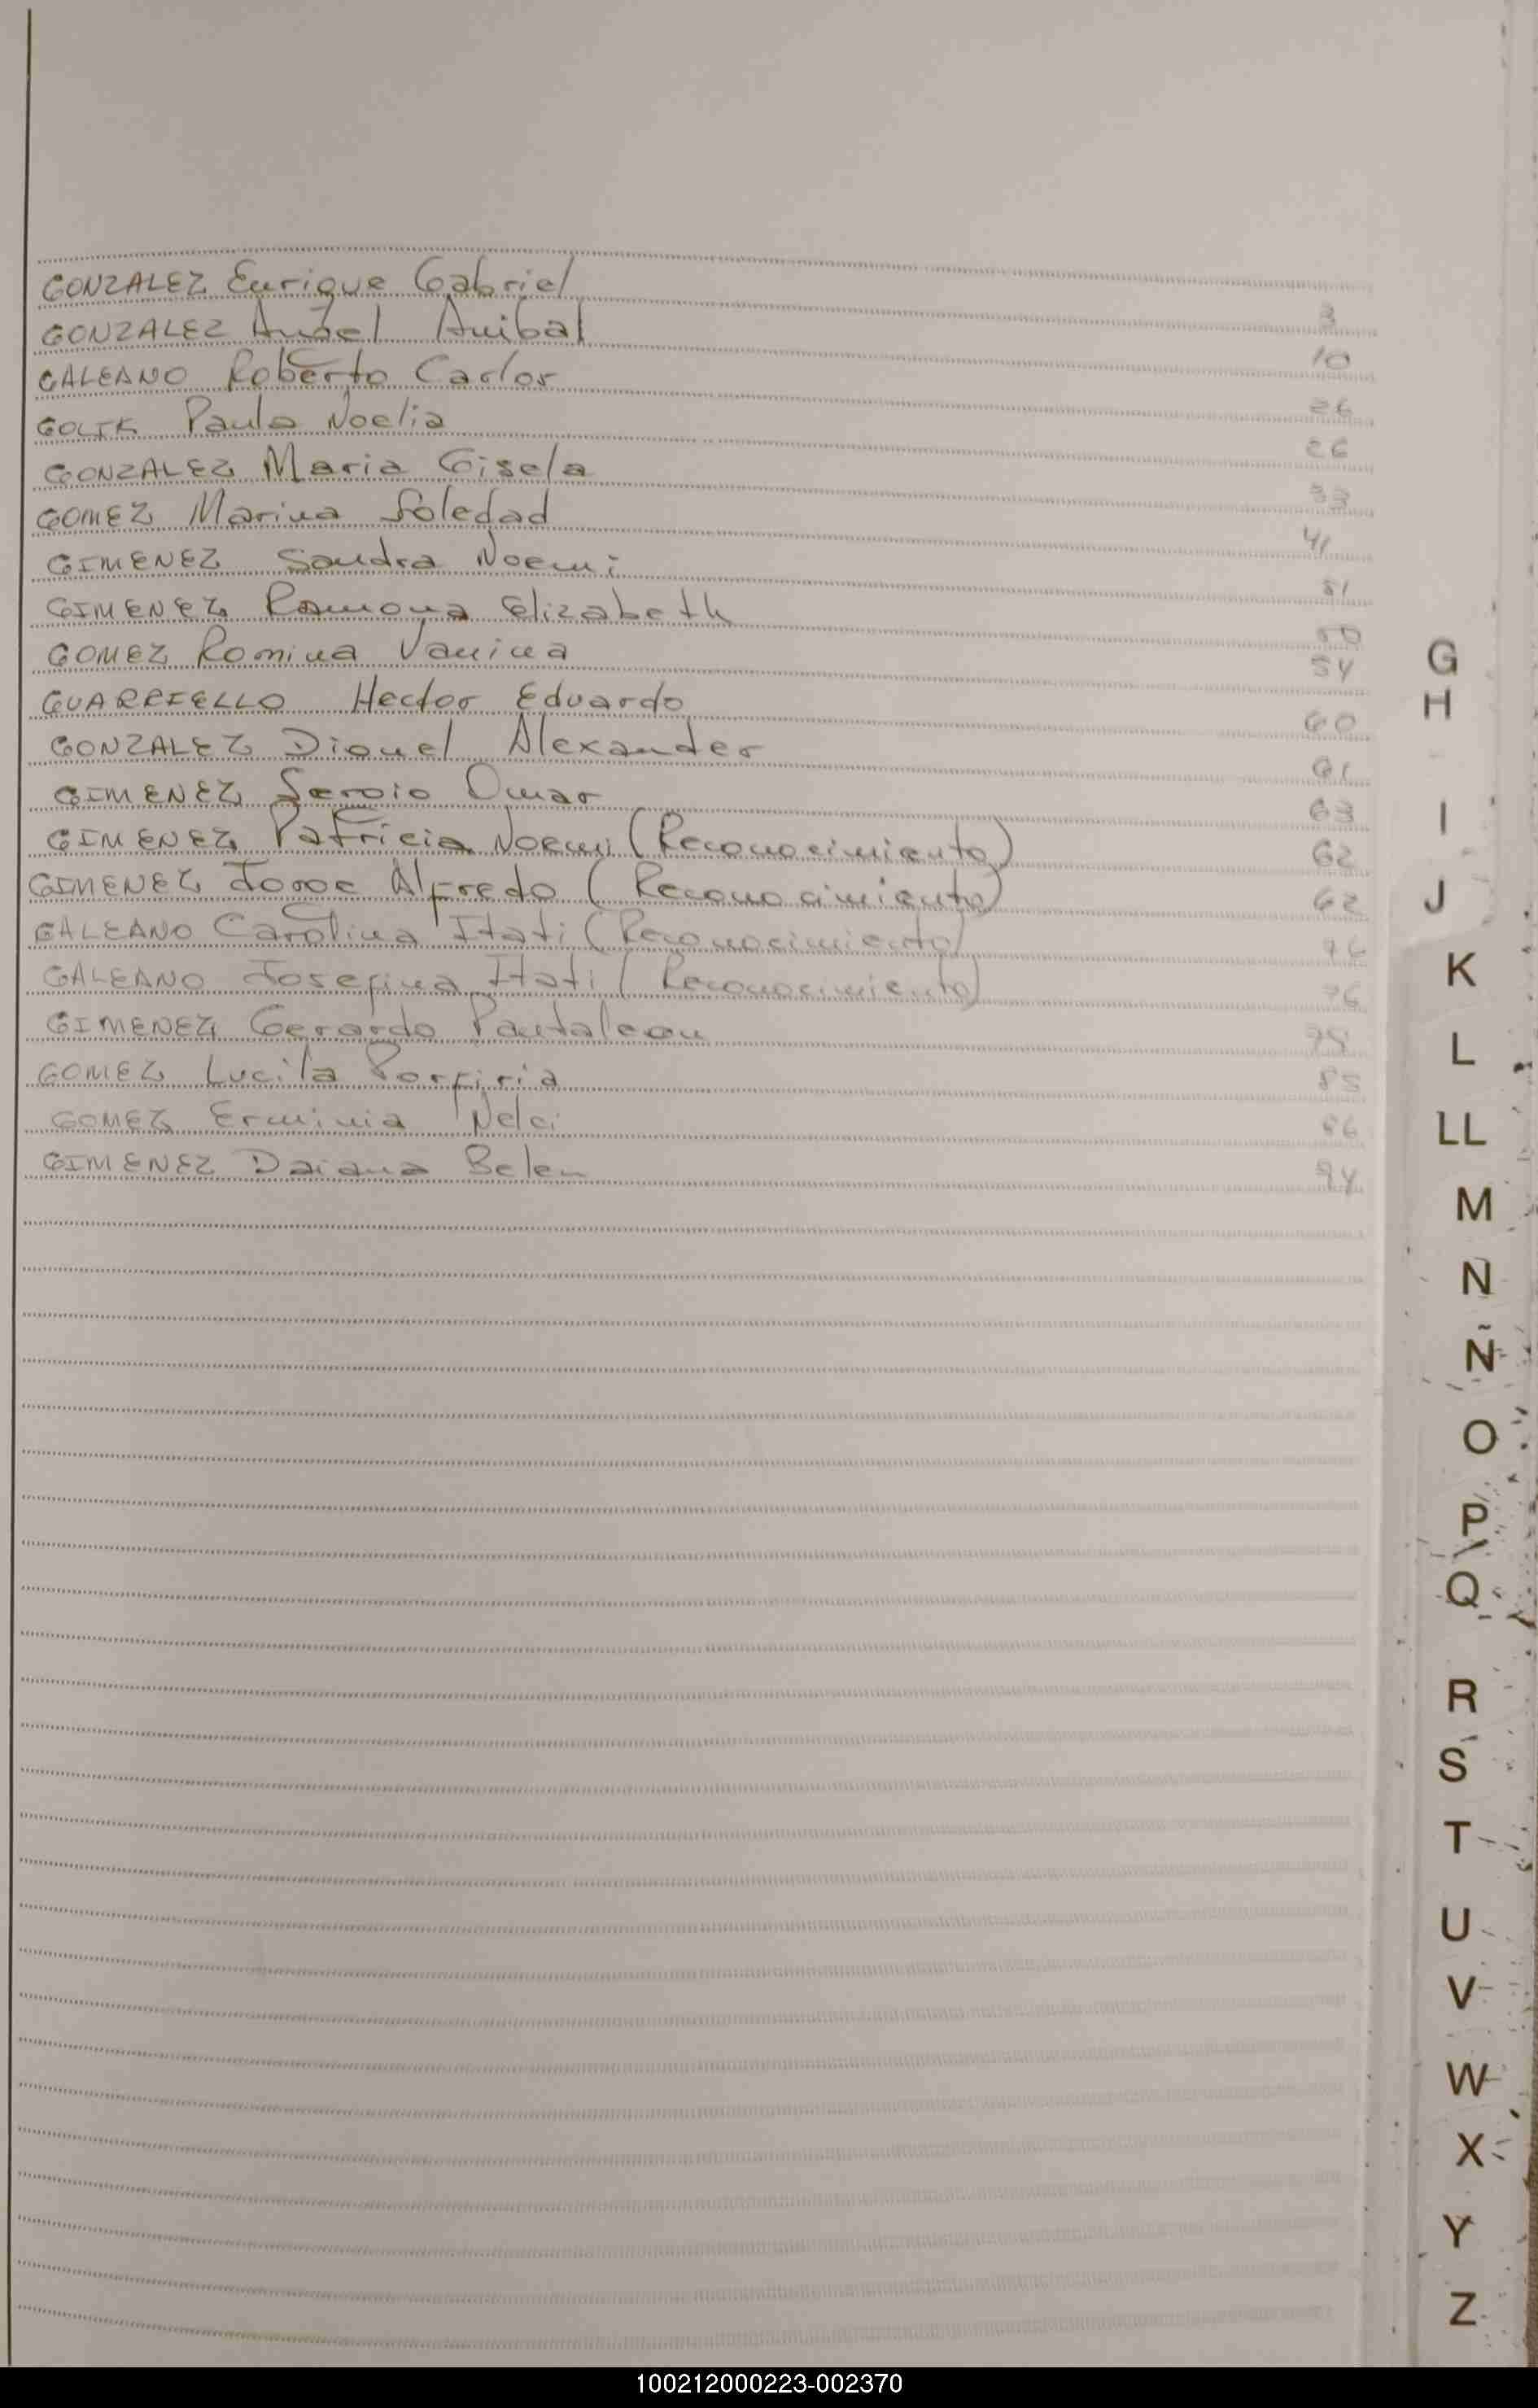 GONZALEZ Enrique Gabriel 3
GONZALEZ Angel Anibal 10
GALEANO Roberto Carlos 26
GOLIK Paula Noelia 26
GONZALEZ Maria Gisela 33
GOMEZ Marina Soledad 41
GIMENEZ Sandra Noemi 51
GIMENEZ Ramona Elizabeth
GOMEZ Romina Vanina 54
GUARRIELLO Hector Eduardo 60
GONZALEZ Dionel Alexander 61
GIMENEZ Sergio Omar 63
GIMENEZ Patricia Noemi (Reconocimiento) 62
GIMENEZ Jorge Alfredo (Reconocimiento) 62
GALEANO Carolina Itati (Reconocimiento) 76
GALEANO Josefina Itati (Reconocimiento) 76
GIMENEZ Gerardo Pantaleon
GOMEZ Lucila Porfiria 85
GOMEZ Erminia Nelci 86
GIMENEZ Daiana Belen 94
G
H
I
J
K
L
LL
M
N
Ñ
O
P
Q
R
S
T
U
V
W
X
Y
Z
100212000223-002370